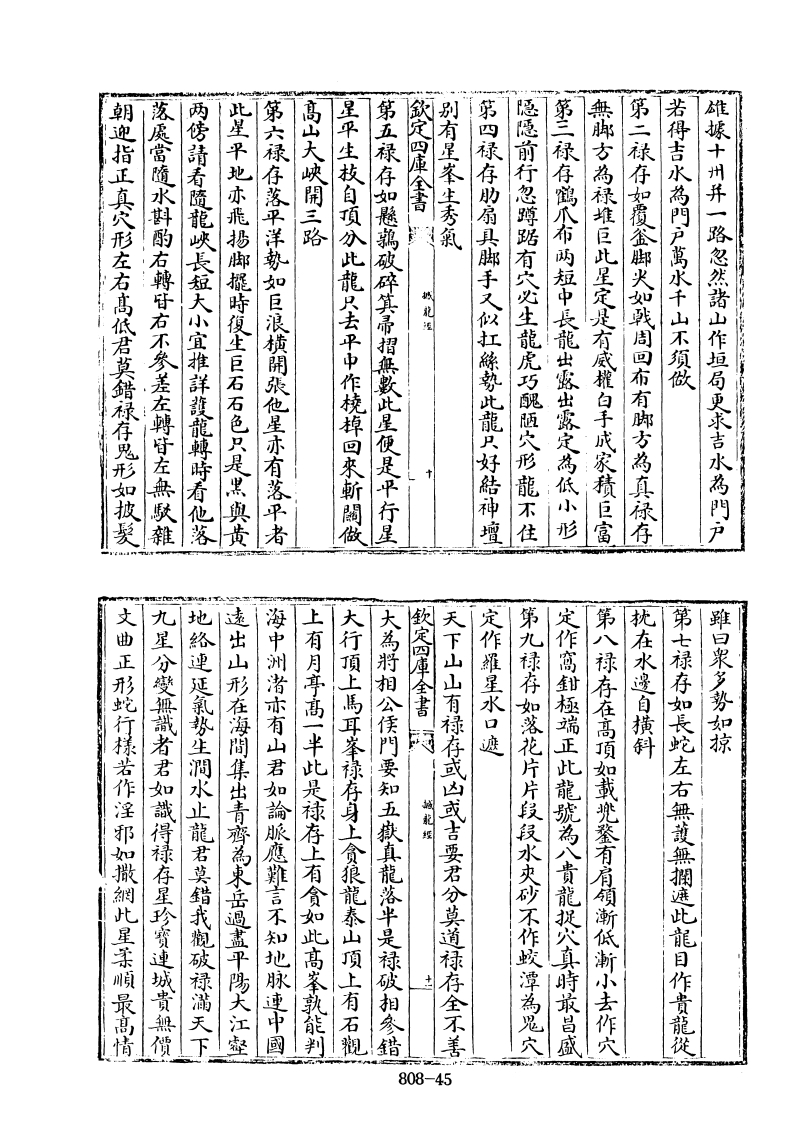 雄據十州并一路忽然諸山作垣局更求吉水為門戸
若得吉水為門戸萬水千山不須做
第二禄存如覆釜脚尖如㦸周回布有脚方為真禄存
無脚方為禄堆巨此星定是有威權白手成家積巨富
第三禄存鶴爪布兩短中長龍出露出露定為低小形
隠隠前行忽蹲踞有穴必生龍虎巧醜陋穴形龍不住
第四禄存肋扇具脚手又似扛絲勢此龍只好結神壇
别有星峯生秀氣
欽定四庫全書
撼龍經
十
第五禄存如懸鶉破碎箕帚摺無數此星便是平行星
星平生枝自頂分此龍只去平中作橈棹回來斬關做
髙山大峽開三路
第六禄存落平洋勢如巨浪横開張他星亦有落平者
此星平地亦飛揚脚擺時復生巨石石色只是黒與黄
兩傍請看隨龍峽長短大小宜推詳護龍轉時看他落
落處當隨水斟酌右轉皆右不參差左轉皆左無駁雜
朝迎指正真穴形左右髙低君莫錯禄存鬼形如披髮
雖曰衆多勢如掠
第七禄存如長蛇左右無護無攔遮此龍目作貴龍從
枕在水邊自横斜
第八禄存在髙頂如載兠鍪有肩領漸低漸小去作穴
定作窩鉗極端正此龍號為八貴龍捉穴真時最昌盛
第九禄存如落花片片段段水夾砂不作蛟潭為鬼穴
定作羅星水口遮
天下山山有禄存或凶或吉要君分莫道禄存全不善
欽定四庫全書
撼龍經
十一
大為將相公侯門要知五嶽真龍落半是禄破相參錯
大行頂上馬耳峯禄存身上貪狼龍泰山頂上有石觀
上有月亭髙一半此是禄存上有貪如此髙峯孰能判
海中洲渚亦有山君如論脈應難言不知地脈連中國
逺出山形在海間集出青齊為東岳過盡平陽大江壑
地絡連延氣勢生澗水止龍君莫錯我觀破禄滿天下
九星分變無識者君如識得禄存星珍寶連城貴無價
文曲正形蛇行様若作淫邪如撒網此星柔順最髙情
808-45